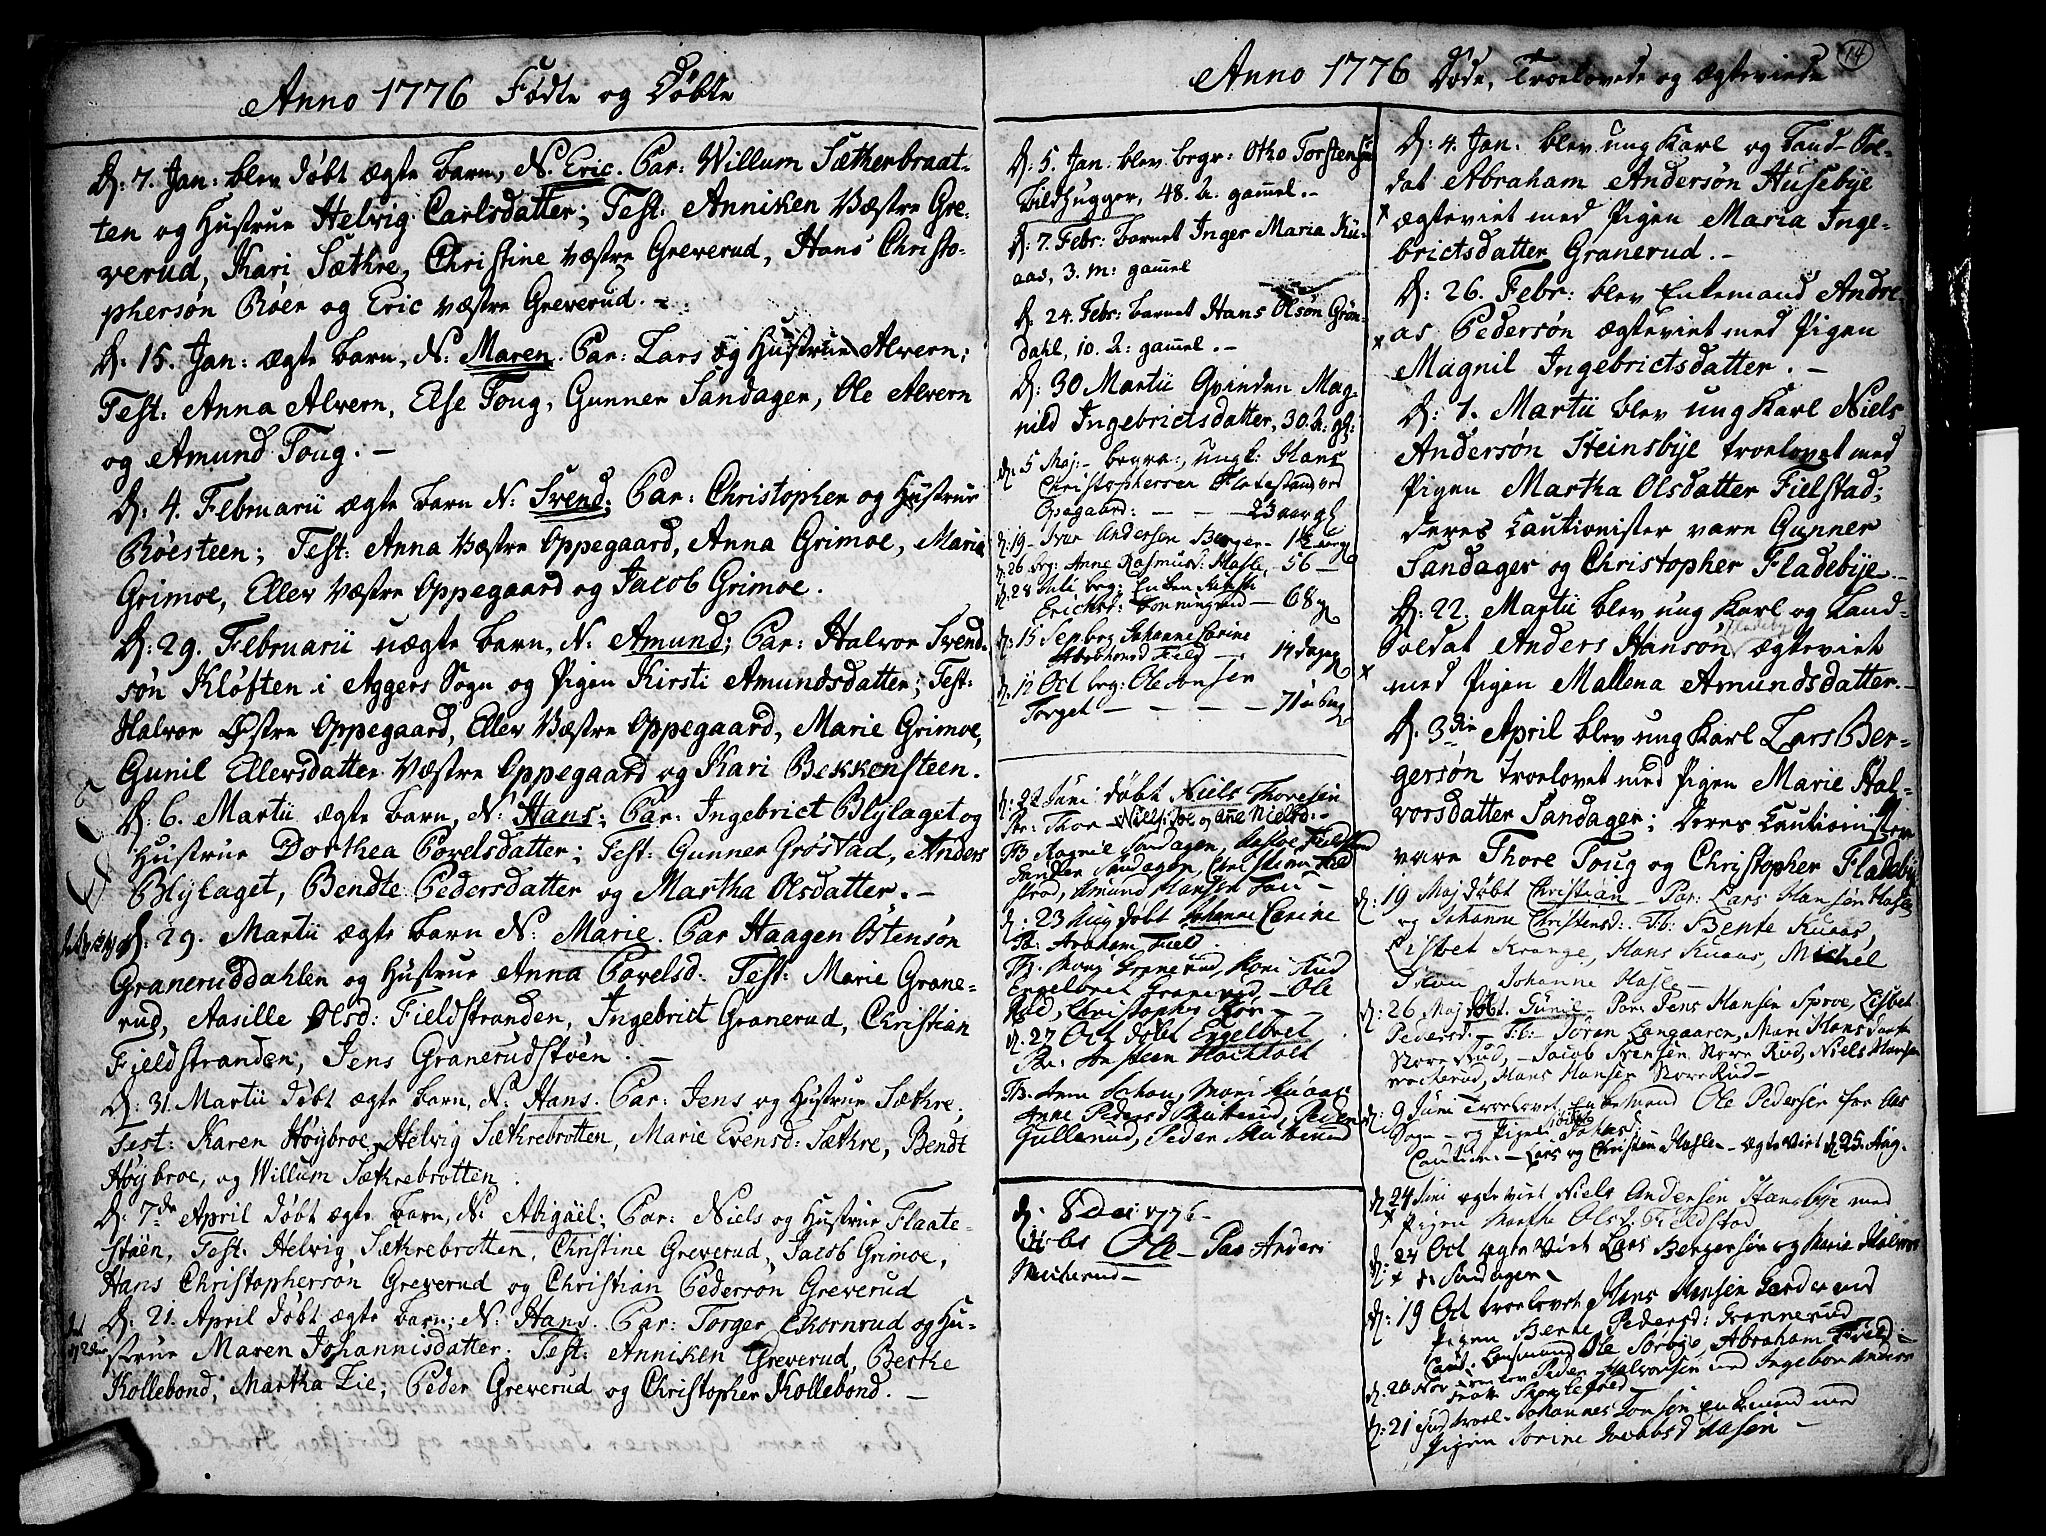 Anno 1776 Födte og Döbte
D: 7. Jan: blev döbt ægte barn, N. Eric. Par: Willum Sætherbraat-
ten og Hustrue Helvig Carlsdatter; Test: Anniken Væstre Gre-
verud, Kari Sæthre, Christine væstre Greverud, Hans Christo-
phersön Röer og Eric væstre Greverud. -
D: 15. Jan: ægte barn, N: Maren. Par: Lars og Hustrue Alvern;
Test: Anna Alvern, Else Toug, Gunner Sandager, Ole Alvern
og Amund Toug. -
D: 4. Februarii ægte barn N: Svend; Par: Christopher og Hustrue
Röesteen; Test: Anna Væstre Oppegaard, Anna Grimoe, Maria
Grimoe, Ellev Væstre Oppegaard og Jacob Grimoe.
D: 29. Februarii uægte barn, N. Amund; Par: Halvor Svend-
sön Klöften i Aggers Sogn og Pigen Kirsti Amundsdatter; Test:
Halvor Östre Oppegaard, Ellev Væstre Oppegaard, Marie Grimoe,
Gunil Ellevsdatter Væstre Oppegaard og Kari Bekkensteen.
D: 6. Martii ægte barn, N: Hans; Par: Ingebrict Blylaget og
Hustrue Dorthea Povelsdatter; Test: Gunner Gröstad, Anders
Blylaget, Bendte Pedersdatter og Martha Olsdatter. -
D: 29. Martii ægte barn N: Marie. Par Haagen Östensön
Graneruddahlen og Hustrue Anna Povelsd: Test: Marie Grane-
rud, Aasille Olsd: Fieldstranden, Ingebrict Granerud, Christian
Fieldstranden, Jens Granerudstöen. -
D: 31. Martii döbt ægte barn, N: Hans. Par: Jens og Hustrue Sæthre;
Test: Karen Höybroe, Helvig Sæthrebrotten, Marie Evensd: Sæthre, Bendt
Höybroe, og Willum Sæthrebrotten.
D: 7de April döbt ægte barn, N: Abigäel; Par: Niels og Hustrue Flaate-
stöen, Test: Helvig Sæthrebrotten, Christine Greverud, Jacob Grimoe,
Hans Christophersön Greverud og Christian Pedersön Greverud
D: 21. April döbt ægte barn; N: Hans. Par: Torger Ekornrud og Hu-
strue Maren Johannisdatter. Test: Anniken Greverud, Berthe
Kollebond, Martha Lie; Peder Greverud og Christopher Kollebond. -
14
Anno 1776 Döde, Troelovede og Ægteviede
D: 5. Jan: blev begr: Otho Torstensön
Bildhugger, 48. A: gamel. -
D: 7. Febr: barnet Inger Maria Ku-
aas, 3. m: gamel
D: 24. Febr: barnet Hans Olsön Grön-
dahl, 10. A: gamel. -
D: 30 Martii Qvinden Mag-
nild Ingebrictsdatter, 30. A: gl:
D: 5 Maj: - begra:, ungk: Hans
Christophersen Flotestand ved
Opegaard: - - 23 aar gl
D: 19 - Iver Andersen Berger -
D: 26 beg: Anne Rasmusd: Hasle, 56 -
D: 28 Juli beg: Enken
Erichsd: - 68
D: 15 Sep beg Johanne Carine
Abrahamsd Field - 14 dage
D: 12 Oct beg: Ole Jensen
Torget - - - - 71
D: 22 Juni döbt Niels Thoresen
Par: Thor og Anne Nielsd: -
Tb. Magnil Sandager,
Sandager, Christian Field
strad, Amund Hansen Tou -
D: 23 Aug döbt Johanne Carine
Par: Abraham Field.
Tb. Mari Granerud, Kari Rud
Engelbret Granerud, - Ole
Rud, Christopher Rör -
D. 27 Oct döbt Engelbret
Par: Hachholt
Tb. Anne Schou, Mari Kuaas
Anne Pedersd Mukerud, Peder
Gullerud, Peder Mukerud
D: 8 Dec: 1776 -
döbt Ole - Par Anders
Mukerud -
D: 4. Jan: blev ung Karl og Land-Sol-
dat Abraham Andersön Husebye
x ægteviet med Pigen Maria Inge-
brictsdatter Granerud. -
D: 26. Febr: blev Enkemand Andre-
x as Pedersön ægteviet med Pigen
Magnil Ingebrictsdatter. -
D: 1. Martii blev ung Karl Niels
Andersön Steinsbye troelovet med
Pigen Martha Olsdatter Fielstad;
deres Cautionister vare Gunner
Sandager og Christopher Fladebye. -
D: 22. Martii blev ung Karl og Land-
Soldat Anders Hansön Fladeby ægteviet
x med Pigen Mallena Amundsdatter. -
D. 3die April blev ung Karl Lars Ber-
gersön troelovet med Pigen Marie Hal-
vorsdatter Sandager; deres Cautionister
vare Thore Toug og Christopher Fladeby
D: 19 Maj döbt Christian - Par: Lars Hansön Hasle
og Johanne Christensd: Tb: Bente Kuaas,
Lisbet Krange, Hans Kuaas, Michel
Johanne Hasle -
D: 26 Maj döbt. Gunil - Par: Jens Hansen Sproe, Lisbet
Pedersd - Tb: Sören Langaaren, Mari Hansdaater
Nore Rud, - Jacob Svensen Nore Rud, Niels Hansen
Hans Hansen Nore Rud -
D: 9 Juni Troelovet Enkemand Ole Pedersen fra Aas
Sogn - og Pigen
Caution. - Lars og Christen Hasle - ægte viet D: 25. Aug.
D: 24 Juni ægte viet Niels Andersen Stensbye med
x Pigen Marthe Olsd: Fieldstad
D: 24 Oct ægte viet Lars Bergersön og Marie Halvors
x d: Sandager
D: 19 Oct troelovet Hans Hansen med
Pigen Bente Pedersd: Grannerud
Caut: Lensmand Ole Sörbye, Abraham Field -
D. 26 Nov Peder Halvorsen med Ingebor Anders
D: 21 troel - Johannes Jonsen Enkemand med
Pigen Sorine Jacobsd Hasen -